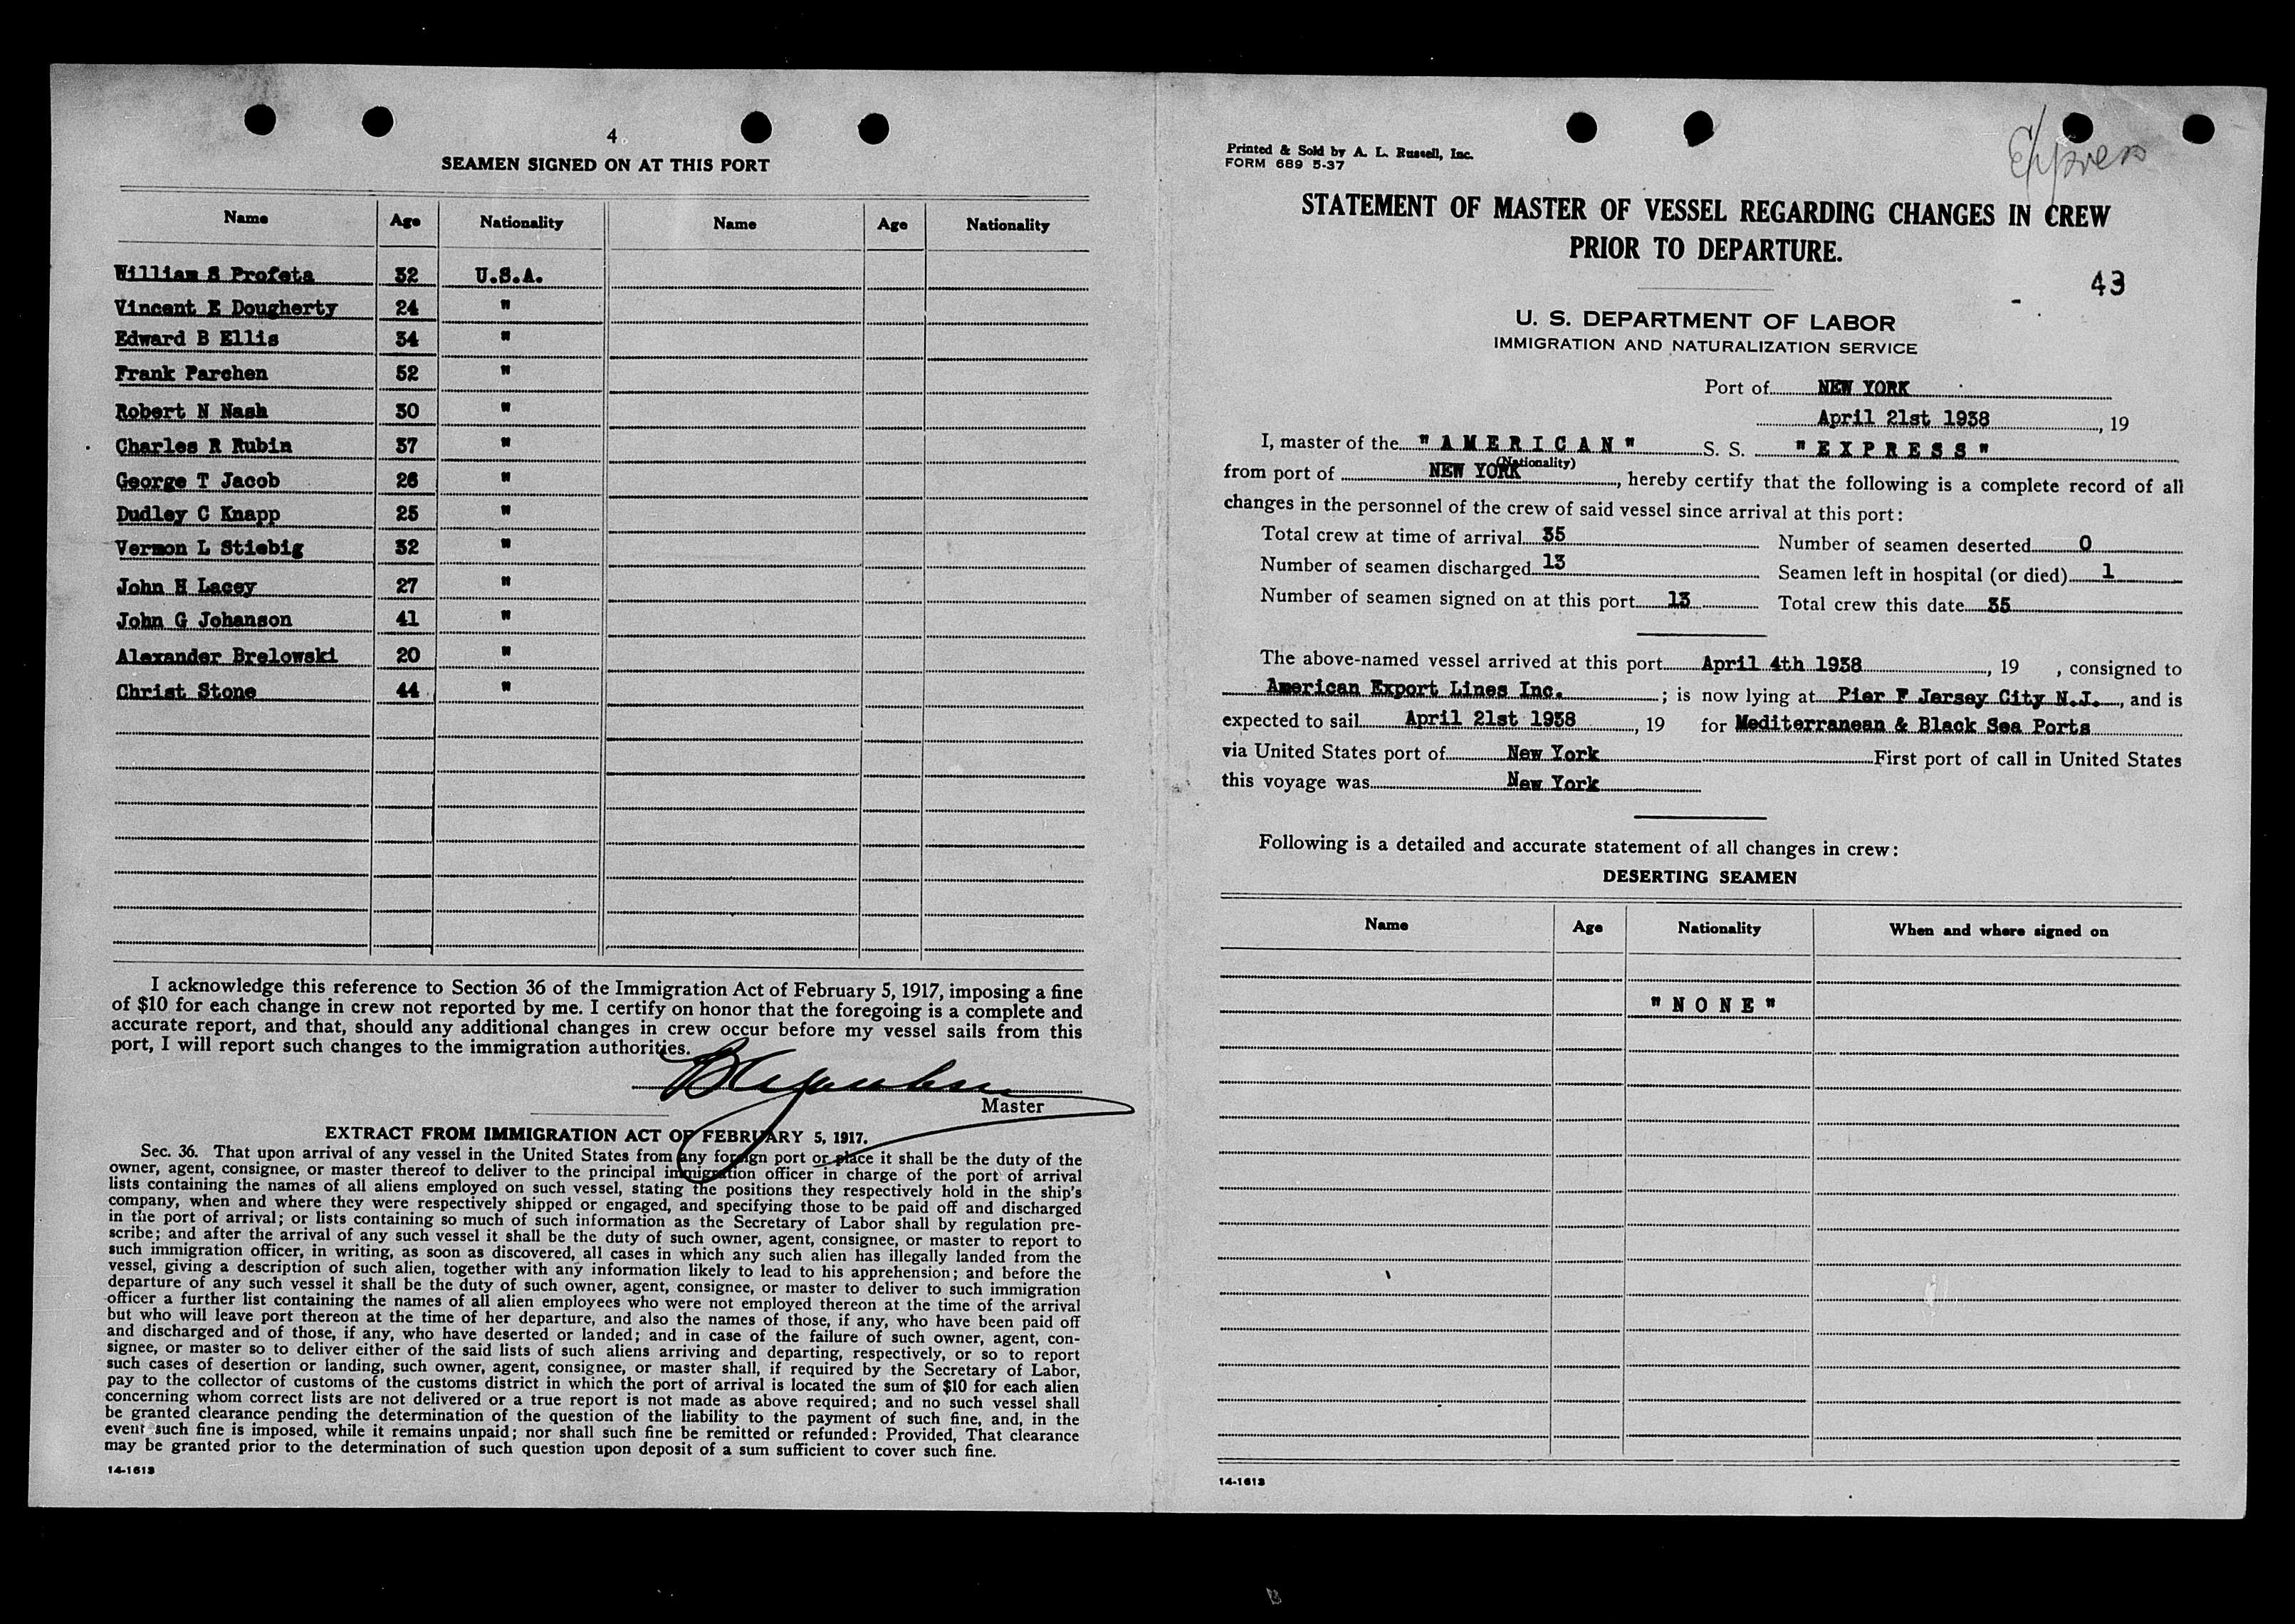 4.
SEAMEN SIGNED ON AT THIS PORT
Name Age Nationality Name Age Nationality
William S Profeta 32 U.S.A.
Vincent E Dougherty 24 "
Edward B Ellis 34 "
Frank Parchen 52 "
Robert N Nash 30 "
Charles R Rubin 37 "
George T Jacob 26 "
Dudley C Knapp 25 "
Vermon L Stiebig 32 "
John H Lacey 27 "
John G Johanson 41 "
Alexander Brelowski 20 "
Christ Stone 44 "
I acknowledge this reference to Section 36 of the Immigration Act of February 5, 1917, imposing a fine
of $10 for each change in crew not reported by me. I certify on honor that the foregoing is a complete and
accurate report, and that, should any additional changes in crew occur before my vessel sails from this
port, I will report such changes to the immigration authorities.
Master
EXTRACT FROM IMMIGRATION ACT OF FEBRUARY 5, 1917.
Sec. 36. That upon arrival of any vessel in the United States from any foreign port or place it shall be the duty of the
owner, agent, consignee, or master thereof to deliver to the principal immigration officer in charge of the port of arrival
lists containing the names of all aliens employed on such vessel, stating the positions they respectively hold in the ship's
company, when and where they were respectively shipped or engaged, and specifying those to be paid off and discharged
in the port of arrival; or lists containing so much of such information as the Secretary of Labor shall by regulation pre-
scribe; and after the arrival of any such vessel it shall be the duty of such owner, agent, consignee, or master to report to
such immigration officer, in writing, as soon as discovered, all cases in which any such alien has illegally landed from the
vessel, giving a description of such alien, together with any information likely to lead to his apprehension; and before the
departure of any such vessel it shall be the duty of such owner, agent, consignee, or master to deliver to such immigration
officer a further list containing the names of all alien employees who were not employed thereon at the time of the arrival
but who will leave port thereon at the time of her departure, and also the names of those, if any, who have been paid off
and discharged and of those, if any, who have deserted or landed; and in case of the failure of such owner, agent, con-
signee, or master so to deliver either of the said lists of such aliens arriving and departing, respectively, or so to report
such cases of desertion or landing, such owner, agent, consignee, or master shall, if required by the Secretary of Labor,
pay to the collector of customs of the customs district in which the port of arrival is located the sum of $10 for each alien
concerning whom correct lists are not delivered or a true report is not made as above required; and no such vessel shall
be granted clearance pending the determination of the question of the liability to the payment of such fine, and, in the
event such fine is imposed, while it remains unpaid; nor shall such fine be remitted or refunded: Provided, That clearance
may be granted prior to the determination of such question upon deposit of a sum sufficient to cover such fine.
14-1613
Printed & Sold by A. L. Russell, Inc.
FORM 689 5-37
Express
STATEMENT OF MASTER OF VESSEL REGARDING CHANGES IN CREW
PRIOR TO DEPARTURE.
43
U. S. DEPARTMENT OF LABOR
IMMIGRATION AND NATURALIZATION SERVICE
Port of NEW YORK
April 21st 1938, 19
I, master of the "AMERICAN" S. S. "EXPRESS"
(Nationality)
from port of NEW YORK, hereby certify that the following is a complete record of all
changes in the personnel of the crew of said vessel since arrival at this port:
Total crew at time of arrival 35 Number of seamen deserted 0
Number of seamen discharged 13 Seamen left in hospital (or died) 1
Number of seamen signed on at this port 13 Total crew this date 35
The above-named vessel arrived at this port April 4th 1938, 19 , consigned to
American Export Lines Inc. ; is now lying at Pier F Jersey City N.J., and is
expected to sail April 21st 1938, 19 for Mediterranean & Black Sea Ports
via United States port of New York First port of call in United States
this voyage was New York
Following is a detailed and accurate statement of all changes in crew:
DESERTING SEAMEN
Name Age Nationality When and where signed on
"NONE"
14-1613